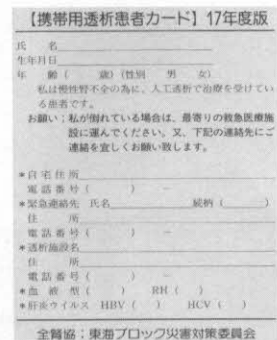 【携帯用透析患者カード】17年度版
氏　名
生年月日
年　齢（　　歳）（性別　男　女）
私は慢性腎不全の為に、人工透析で治療を受けてい
る患者です。
お願い；私が倒れている場合は、最寄りの救急医療施
設に運んでください。又、下記の連絡先にご
連絡を宜しくお願い致します。
*自宅住所
電話番号（　　）　－
*緊急連絡先　氏名　　　続柄（　　）
住　所
電話番号（　　）　－
*透析施設名
住　所
電話番号（　　）　－
*血液型（　　）　RH（　）
*肝炎ウイルス　HBV（　）　HCV（　）
全腎協；東海ブロック災害対策委員会